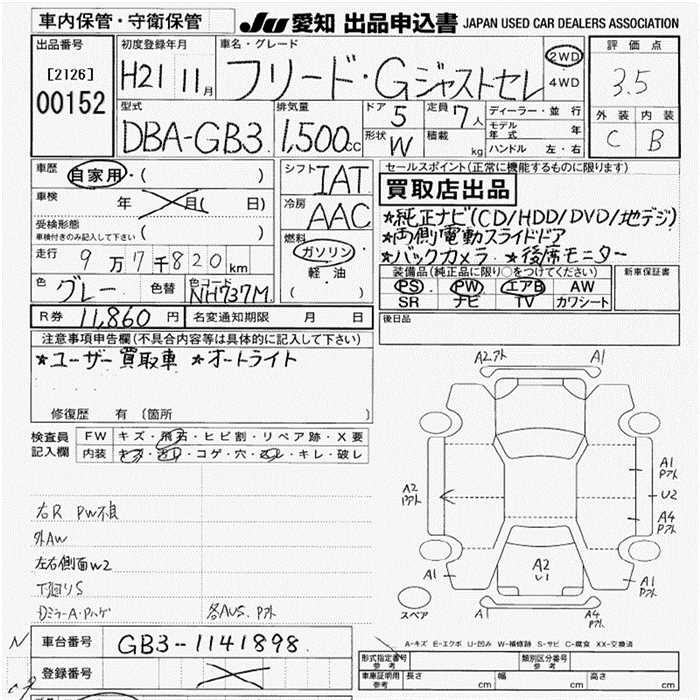 車内保管・守衛保管
JU 愛知 出品申込書 JAPAN USED CAR DEALERS ASSOCIATION
出品番号
[2126]
00152
初度登録年月
H21 11月
車名・グレード
フリード・Gジャストセレ
2WD
・
4WD
評価点
3.5
外装 内装
C B
型式
DBA-GB3
排気量
1,500cc
ドア 5
定員 7人
形状 W
積載 kg
ディーラー・並行
モデル年式 年
ハンドル 左・右
車歴
自家用・( )
車検 年 月( 日)
受検形態
車検付きのみ記入して下さい ( )
走行 9万7千820km
色 グレー 色替
色コード NH737M
シフト IAT
冷房 AAC
燃料
ガソリン
軽油
( )
セールスポイント(正常に機能するものに限ります)
買取店出品
★純正ナビ(CD/HDD/DVD/地デジ)
★両側電動スライドドア
★バックカメラ ★後席モニター
装備品(純正品に限り○をつけてください)
PS PW エアB AW
SR ナビ TV カワシート
新車保証書
R券 11,860円
名変通知期限 月 日
後日品
注意事項申告欄(不具合内容等は具体的に記入して下さい)
★ユーザー買取車 ★オートライト
修復歴 有(箇所 )
検査員
記入欄
FW キズ・飛石・ヒビ割・リペア跡・X要
内装 キズ・汚レ・コゲ・穴・凹レ・キレ・破レ
右R PW不良
外AW
左右側面W2
下廻りS
各AUS.Pアト
A2アト A1
A2
Pアト
A1
Pアト
U2
A4
Pアト
A2
U1
A1
A1
Pアト
A1
A4
Pアト
スペア
N
車台番号 GB3-1141898
登録番号
A-キズ E-エクボ U-凹み W-補修跡 S-サビ C-腐食 XX-交換済
形式指定番号
参考
類別区分番号
参考
車庫証明用
参考
長さ cm 幅 cm 高さ cm